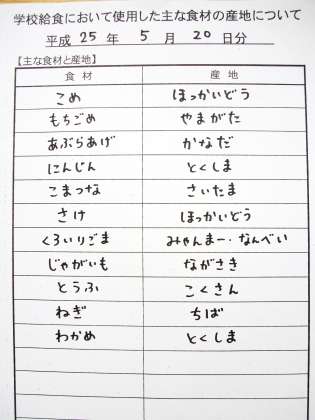 学校給食において使用した主な食材の産地について
平成 25 年 5 月 20 日分
【主な食材と産地】
食材 産地
こめ ほっかいどう
もちごめ やまがた
あぶらあげ かなだ
にんじん とくしま
こまつな さいたま
さけ ほっかいどう
くろいりごま みゃんまー・なんべい
じゃがいも ながさき
とうふ こくさん
ねぎ ちば
わかめ とくしま